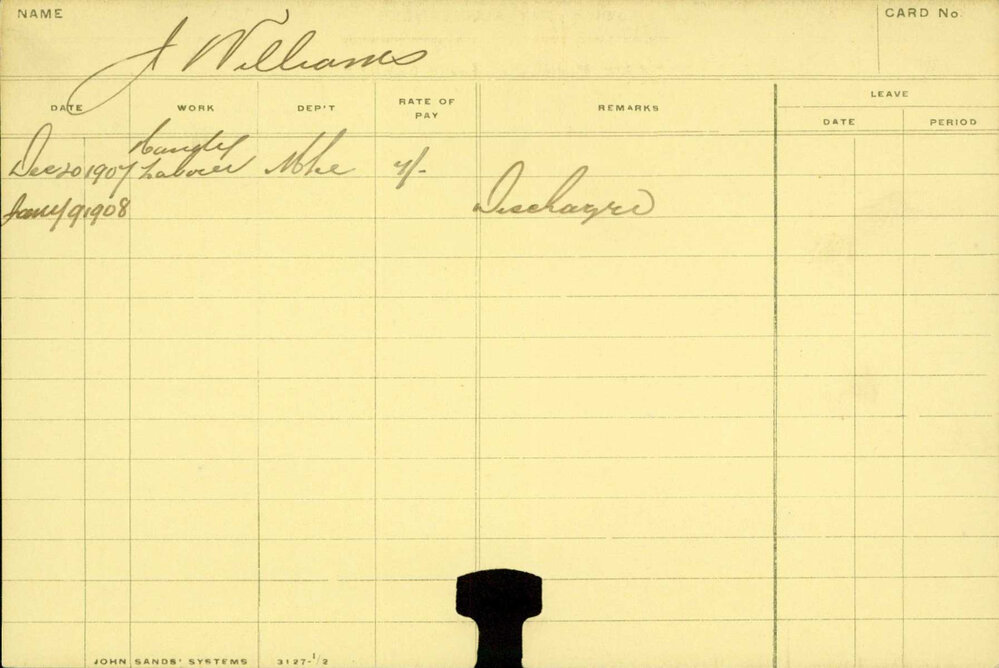 NAME
CARD No.
J Williams
DATE WORK DEP'T RATE OF PAY REMARKS LEAVE
DATE PERIOD
Dec 20 1907 Labourer 7/-
Jany 9 1908 Discharged
JOHN SANDS' SYSTEMS 3127-1/2